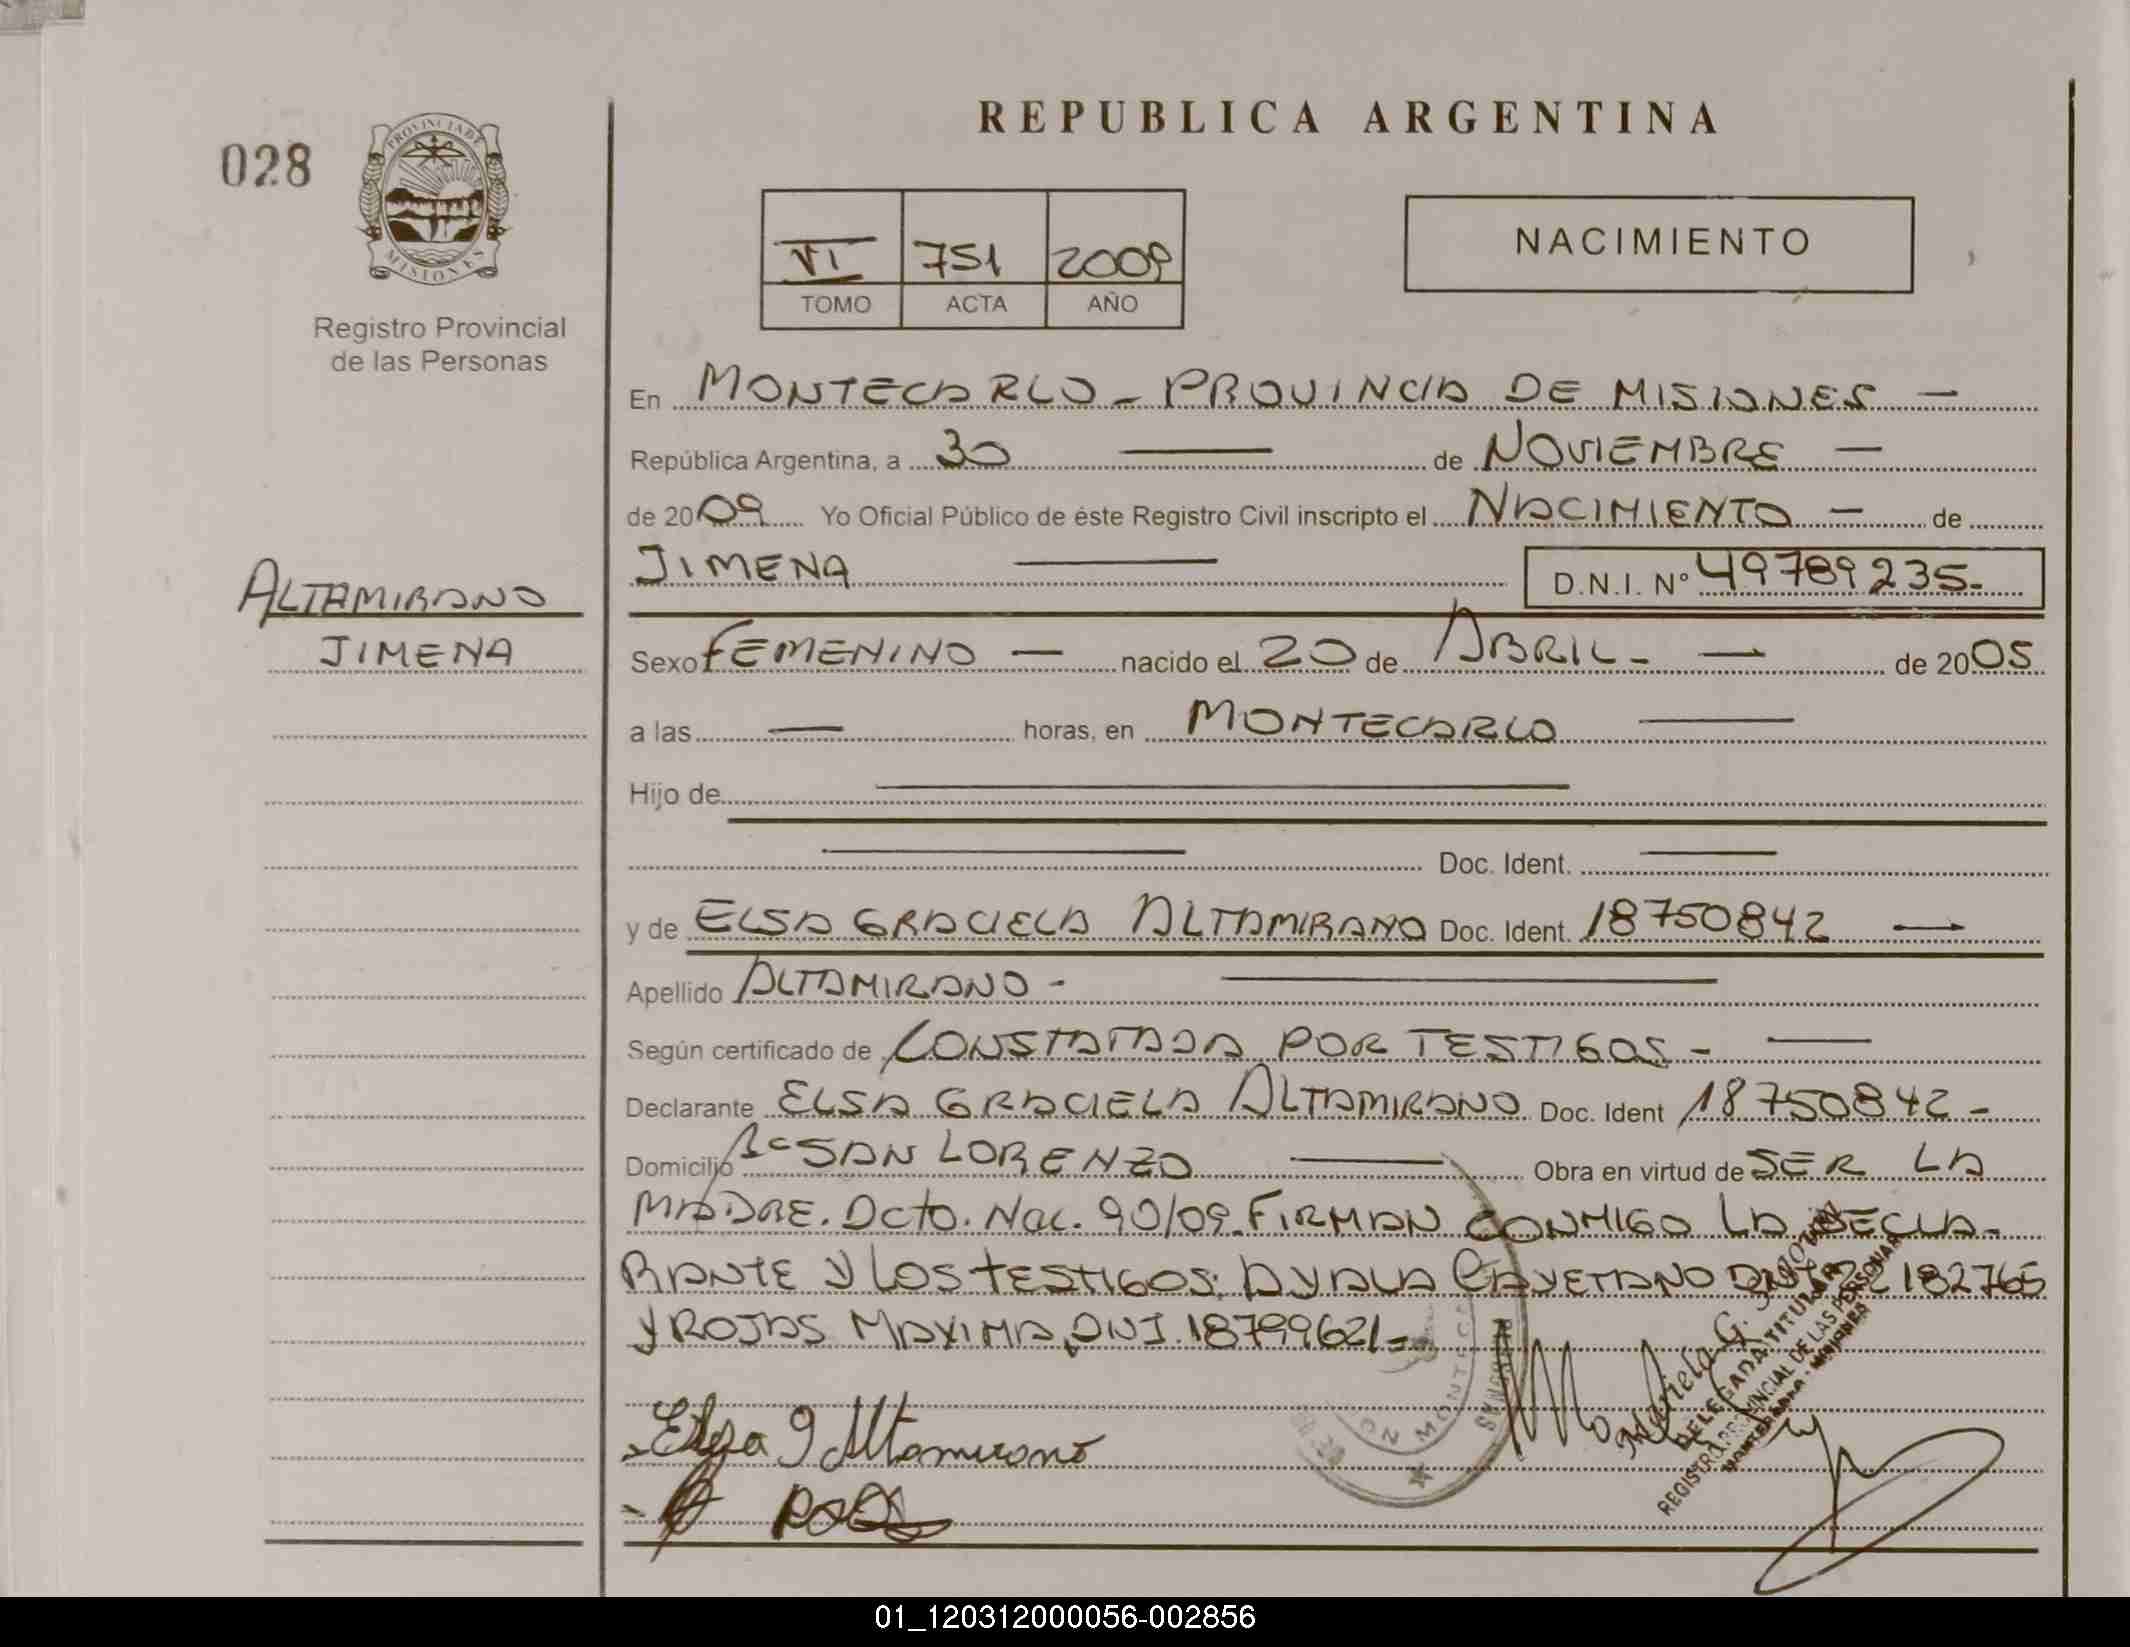 028
PROVINCIA DE
MISIONES
Registro Provincial
de las Personas
REPUBLICA ARGENTINA
VI 751 2009
TOMO ACTA AÑO
NACIMIENTO
En MONTECARLO - PROVINCIA DE MISIONES —
República Argentina, a 30 — de NOVIEMBRE —
de 2009 Yo Oficial Público de éste Registro Civil inscripto el NACIMIENTO — de
JIMENA — D.N.I. N° 49789235-
ALTAMIRANO
JIMENA
Sexo FEMENINO — nacido el 20 de ABRIL - — de 2005
a las — horas, en MONTECARLO —
Hijo de —
— Doc. Ident. —
y de ELSA GRACIELA ALTAMIRANO Doc. Ident. 18750842 —
Apellido ALTAMIRANO - —
Según certificado de CONSTATADA POR TESTIGOS - —
Declarante ELSA GRACIELA ALTAMIRANO Doc. Ident 18750842 -
Domicilio Bº SAN LORENZO — Obra en virtud de SER LA
MADRE. Dcto. Nac. 90/09. FIRMAN CONMIGO LA DECLA-
RANTE Y LOS TESTIGOS: AYALA CAYETANO DNI 22182765
Y ROJAS MAXIMA, DNI. 18799621=
Elsa G Altamirano
Mariela G.
DELEGADA TITULAR
REGISTRO PROVINCIAL DE LAS PERSONAS
MISIONES
01_120312000056-002856